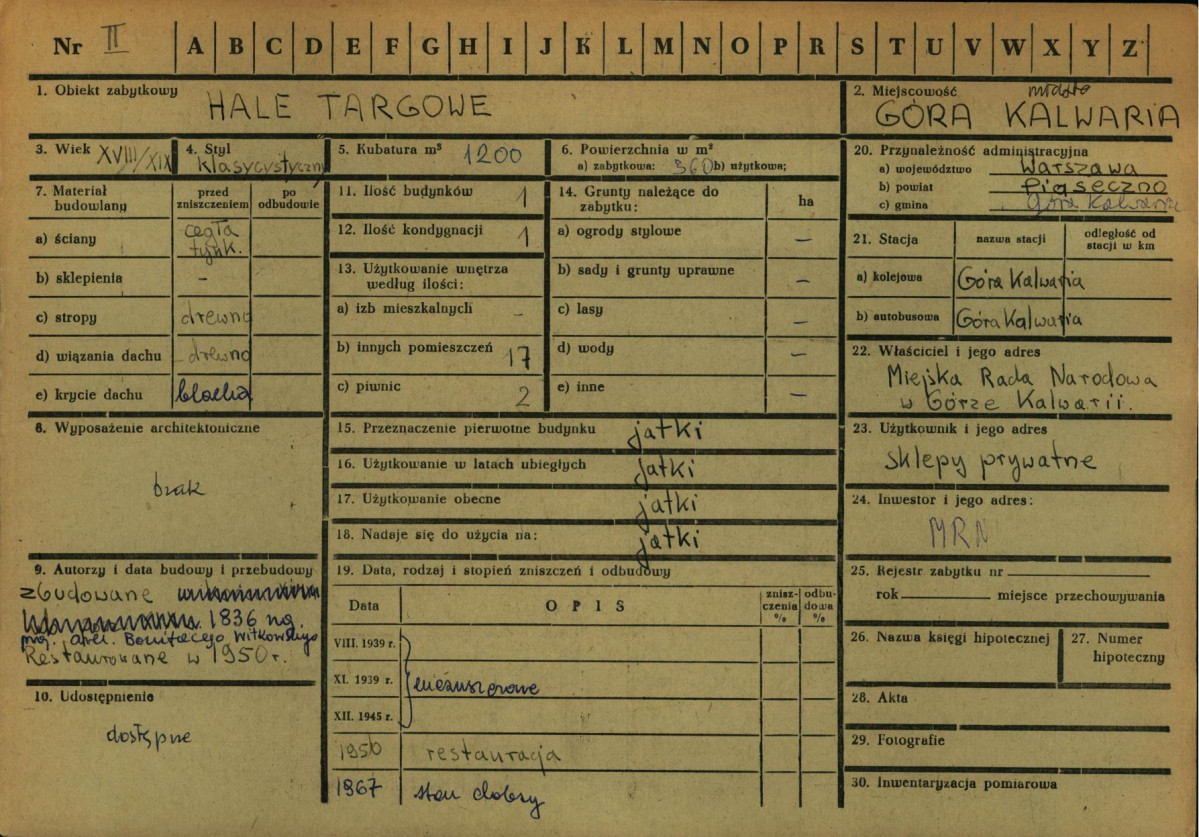 Nr II A B C D E F G H I J K L M N O P R S T U V W X Y Z
1. Obiekt zabytkowy
HALE TARGOWE
2. Miejscowość
miasto
GÓRA KALWARIA
3. Wiek XVIII/XIX
4. Styl
klasycystyczny
5. Kubatura m³ 1200
6. Powierzchnia w m²
a) zabytkowa: 360 b) użytkowa;
20. Przynależność administracyjna
a) województwo Warszawa
b) powiat Piaseczno
c) gmina Góra Kalwaria
7. Materiał budowlany
przed zniszczeniem
po odbudowie
a) ściany cegła
tynk.
b) sklepienia -
c) stropy drewno
d) wiązania dachu drewno
e) krycie dachu blacha
11. Ilość budynków 1
12. Ilość kondygnacji 1
13. Użytkowanie wnętrza
według ilości:
a) izb mieszkalnych -
b) innych pomieszczeń 17
c) piwnic 2
14. Grunty należące do
zabytku:
ha
a) ogrody stylowe –
b) sady i grunty uprawne –
c) lasy –
d) wody –
e) inne –
21. Stacja
nazwa stacji
odległość od
stacji w km
a) kolejowa Góra Kalwaria
b) autobusowa Góra Kalwaria
22. Właściciel i jego adres
Miejska Rada Narodowa
w Górze Kalwarii.
8. Wyposażenie architektoniczne
brak
15. Przeznaczenie pierwotne budynku jatki
16. Użytkowanie w latach ubiegłych jatki
17. Użytkowanie obecne jatki
18. Nadaje się do użycia na: jatki
23. Użytkownik i jego adres
sklepy prywatne
24. Inwestor i jego adres:
MRN
9. Autorzy i data budowy i przebudowy
zbudowane
1836 wg.
proj. arch. Bonifacego Witkowskiego
Restaurowane w 1950 r.
10. Udostępnienie
dostępne
19. Data, rodzaj i stopień zniszczeń i odbudowy
Data
OPIS
znisz-
czenia
%
odbu-
dowa
%
VIII. 1939 r.
XI. 1939 r.
XII. 1945 r.
nienaruszone
1950 restauracja
1967 stan dobry
25. Rejestr zabytku nr
rok miejsce przechowywania
26. Nazwa księgi hipotecznej
27. Numer
hipoteczny
28. Akta
29. Fotografie
30. Inwentaryzacja pomiarowa